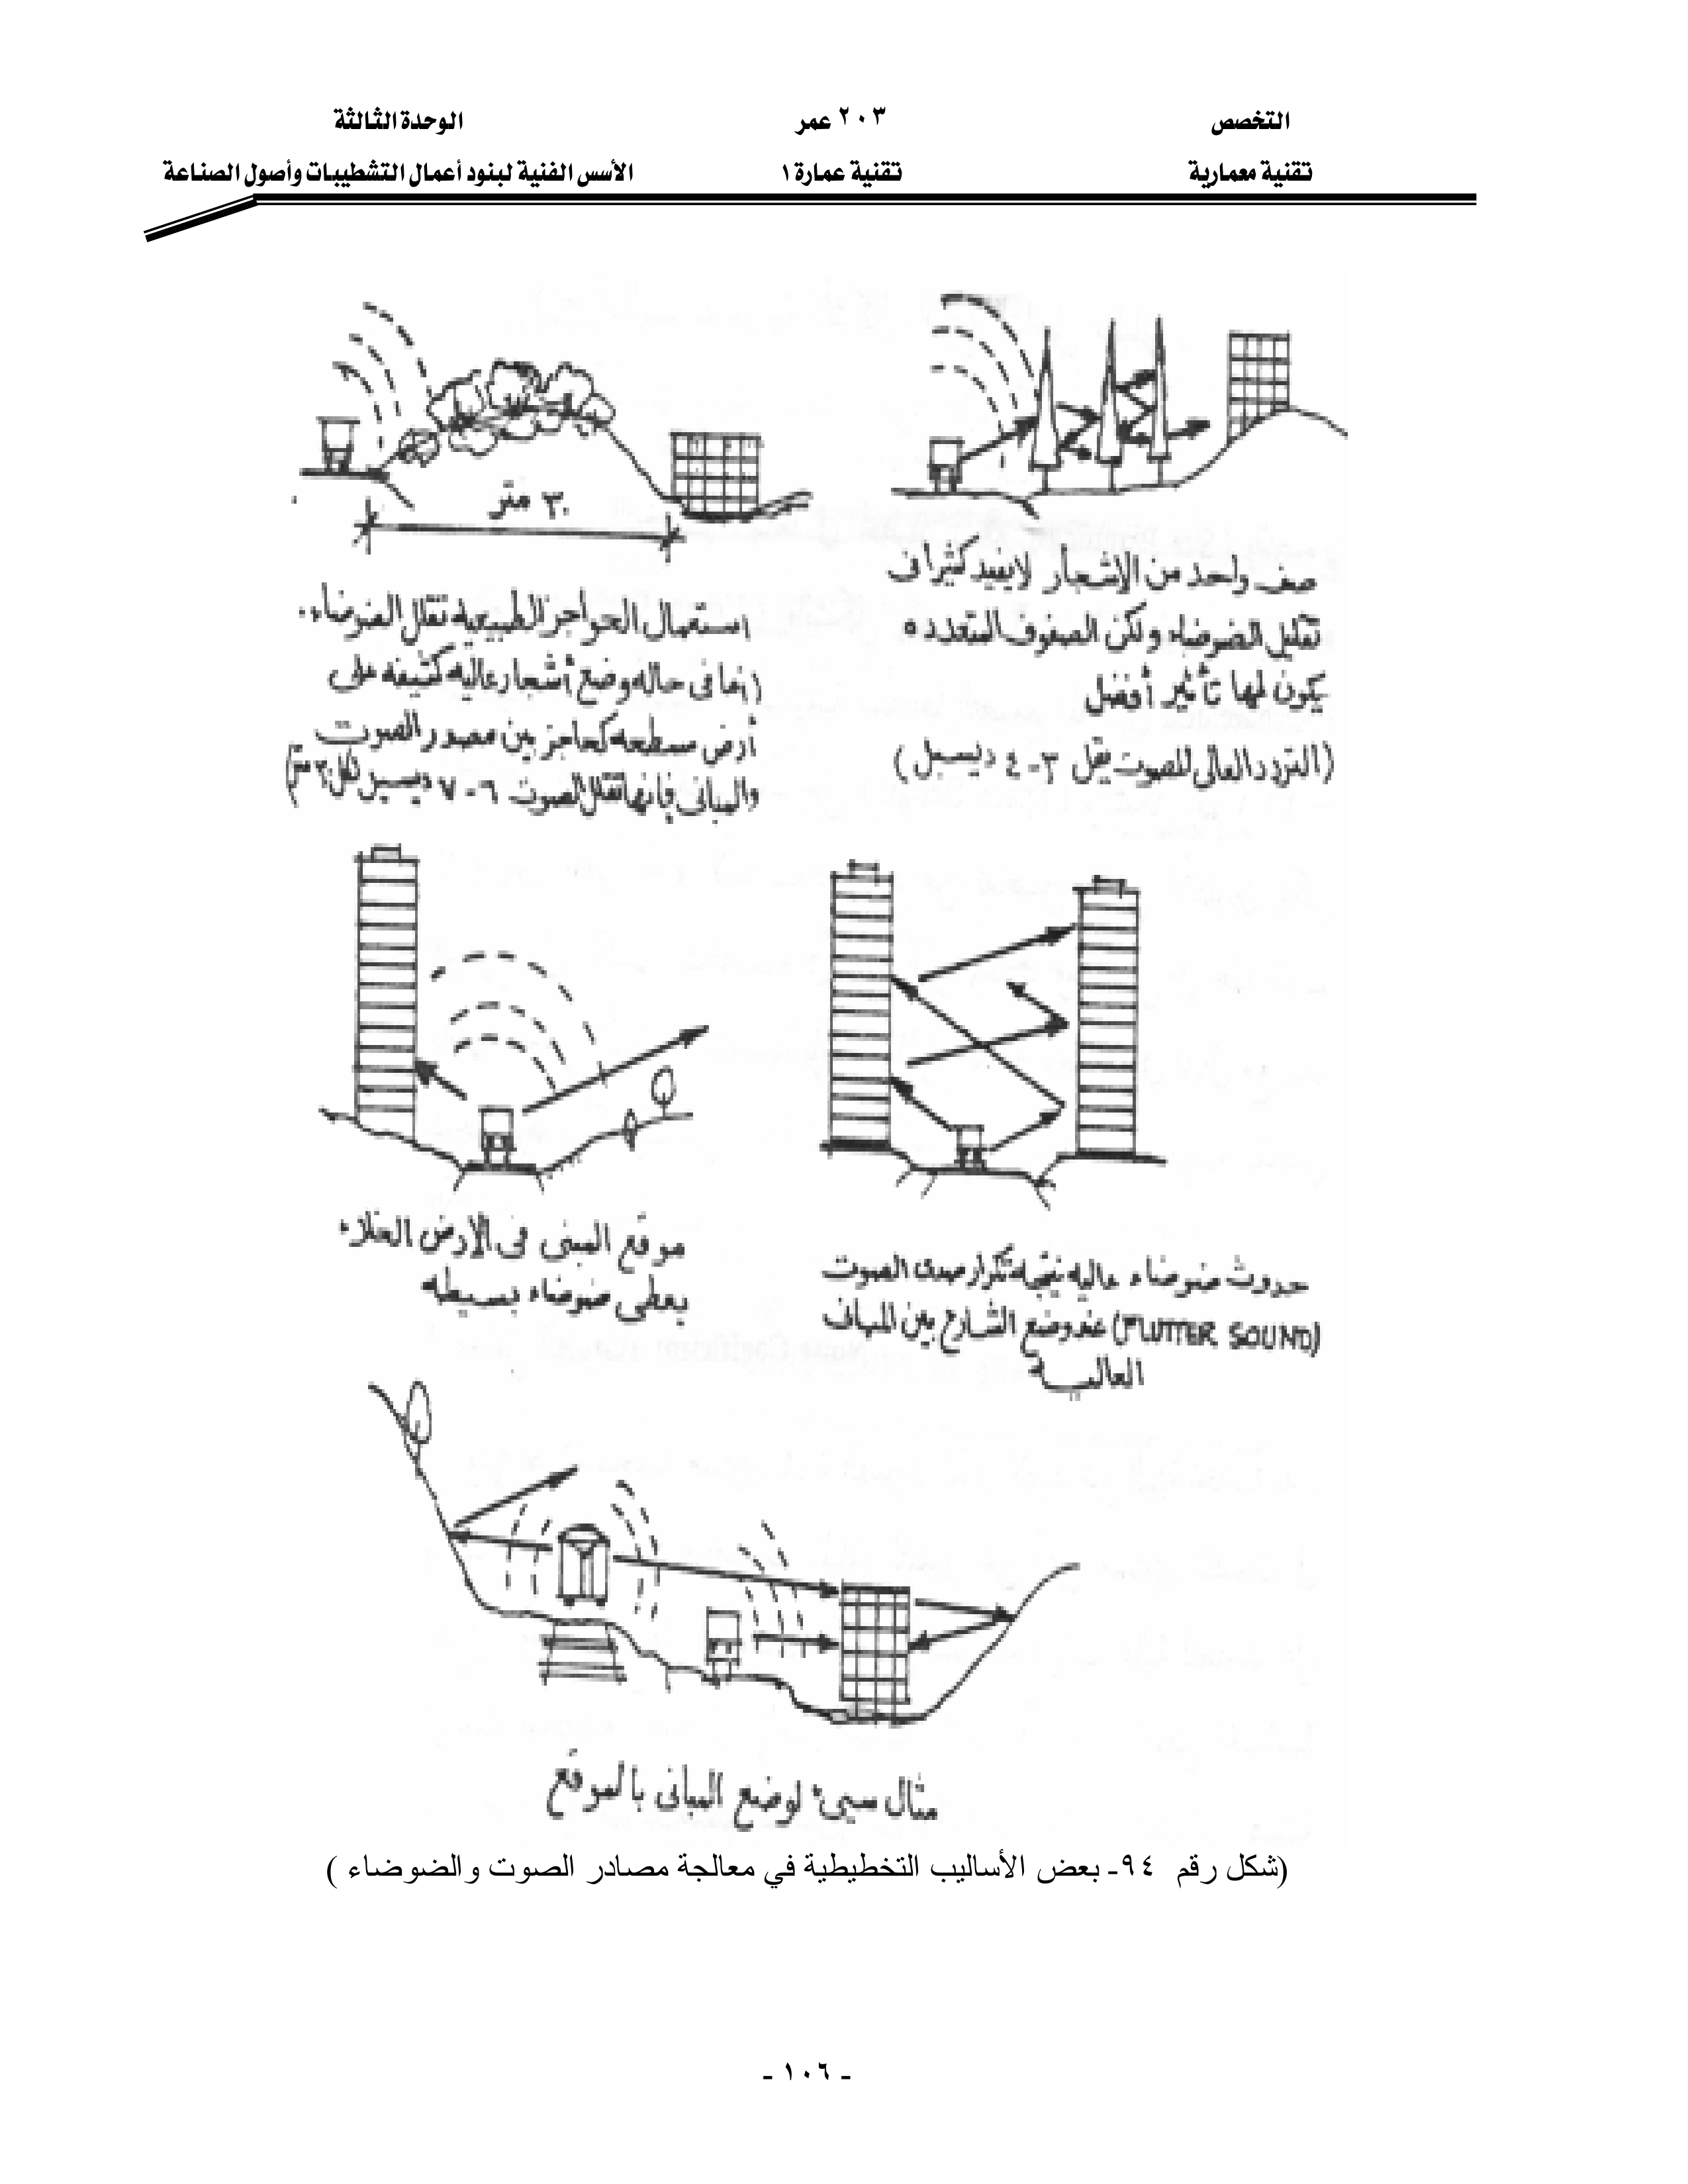 التخصص
٢٠٣ عمر
الوحدة الثالثة
تقنية معمارية
تقنية عمارة ١
الأسس الفنية لبنود أعمال التشطيبات وأصول الصناعة
صف واحد من الاشجار لا يفيد كثيرا فى
تقليل الضوضاء ولكن الصفوف المتعدده
يكون لها تأثير أفضل
(التردد العالى للصوت يقل ٣-٤ ديسبل)
٣٠ متر
استعمال الحواجز الطبيعيه تقلل الضوضاء.
(أما فى حاله وضع أشجار عاليه كثيفه على
أرض مسطحه كحاجز بين مصدر الصوت
والمبانى فإنها تقلل الصوت ٦-٧ ديسبل لكل ٣٠ متر)
حدوث ضوضاء عاليه نتيجه تكرار صدى الصوت
(FLUTTER SOUND) عند وضع الشارع بين المبانى
العاليـــة
موقع المبنى فى الارض الخلاء
يعطى ضوضاء بسيطه
مثال سيئ لوضع المبانى بالموقع
(شكل رقم ٩٤- بعض الأساليب التخطيطية في معالجة مصادر الصوت والضوضاء )
- ١٠٦ -